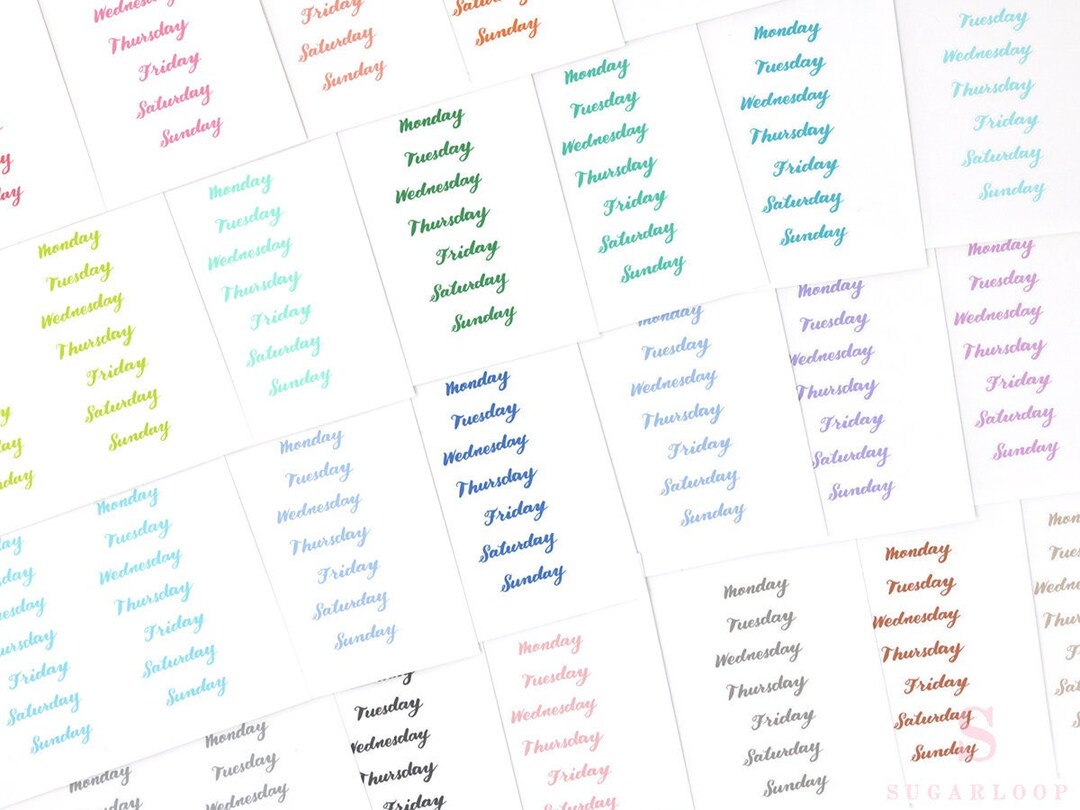 Wednesday
Thursday
Friday
Saturday
Sunday
Friday
Saturday
Sunday
Saturday
Sunday
Monday
Tuesday
Wednesday
Thursday
Friday
Saturday
Sunday
Monday
Tuesday
Wednesday
Thursday
Friday
Saturday
Sunday
Monday
Tuesday
Wednesday
Thursday
Friday
Saturday
Sunday
Monday
Tuesday
Wednesday
Thursday
Friday
Saturday
Sunday
Monday
Tuesday
Wednesday
Thursday
Friday
Saturday
Sunday
Tuesday
Wednesday
Thursday
Friday
Saturday
Sunday
Monday
Tuesday
Wednesday
Thursday
Friday
Saturday
Sunday
Monday
Tuesday
Wednesday
Thursday
Friday
Saturday
Sunday
Monday
Tuesday
Wednesday
Thursday
Friday
Saturday
Sunday
Monday
Tuesday
Wednesday
Thursday
Friday
Saturday
Sunday
Monday
Tuesday
Wednesday
Thursday
Friday
Saturday
Sunday
Friday
Saturday
Sunday
Monday
Tuesday
Wednesday
Thursday
Friday
Saturday
Sunday
Monday
Monday
Tuesday
Tuesday
Wednesday
Thursday
Friday
Monday
Tuesday
Wednesday
Thursday
Friday
Saturday
Monday
Tuesday
Wednesday
Thursday
Friday
Saturday
Sunday
Monday
Tuesday
Wednesday
Thursday
Friday
Saturday
Sunday
S
SUGARLOOP